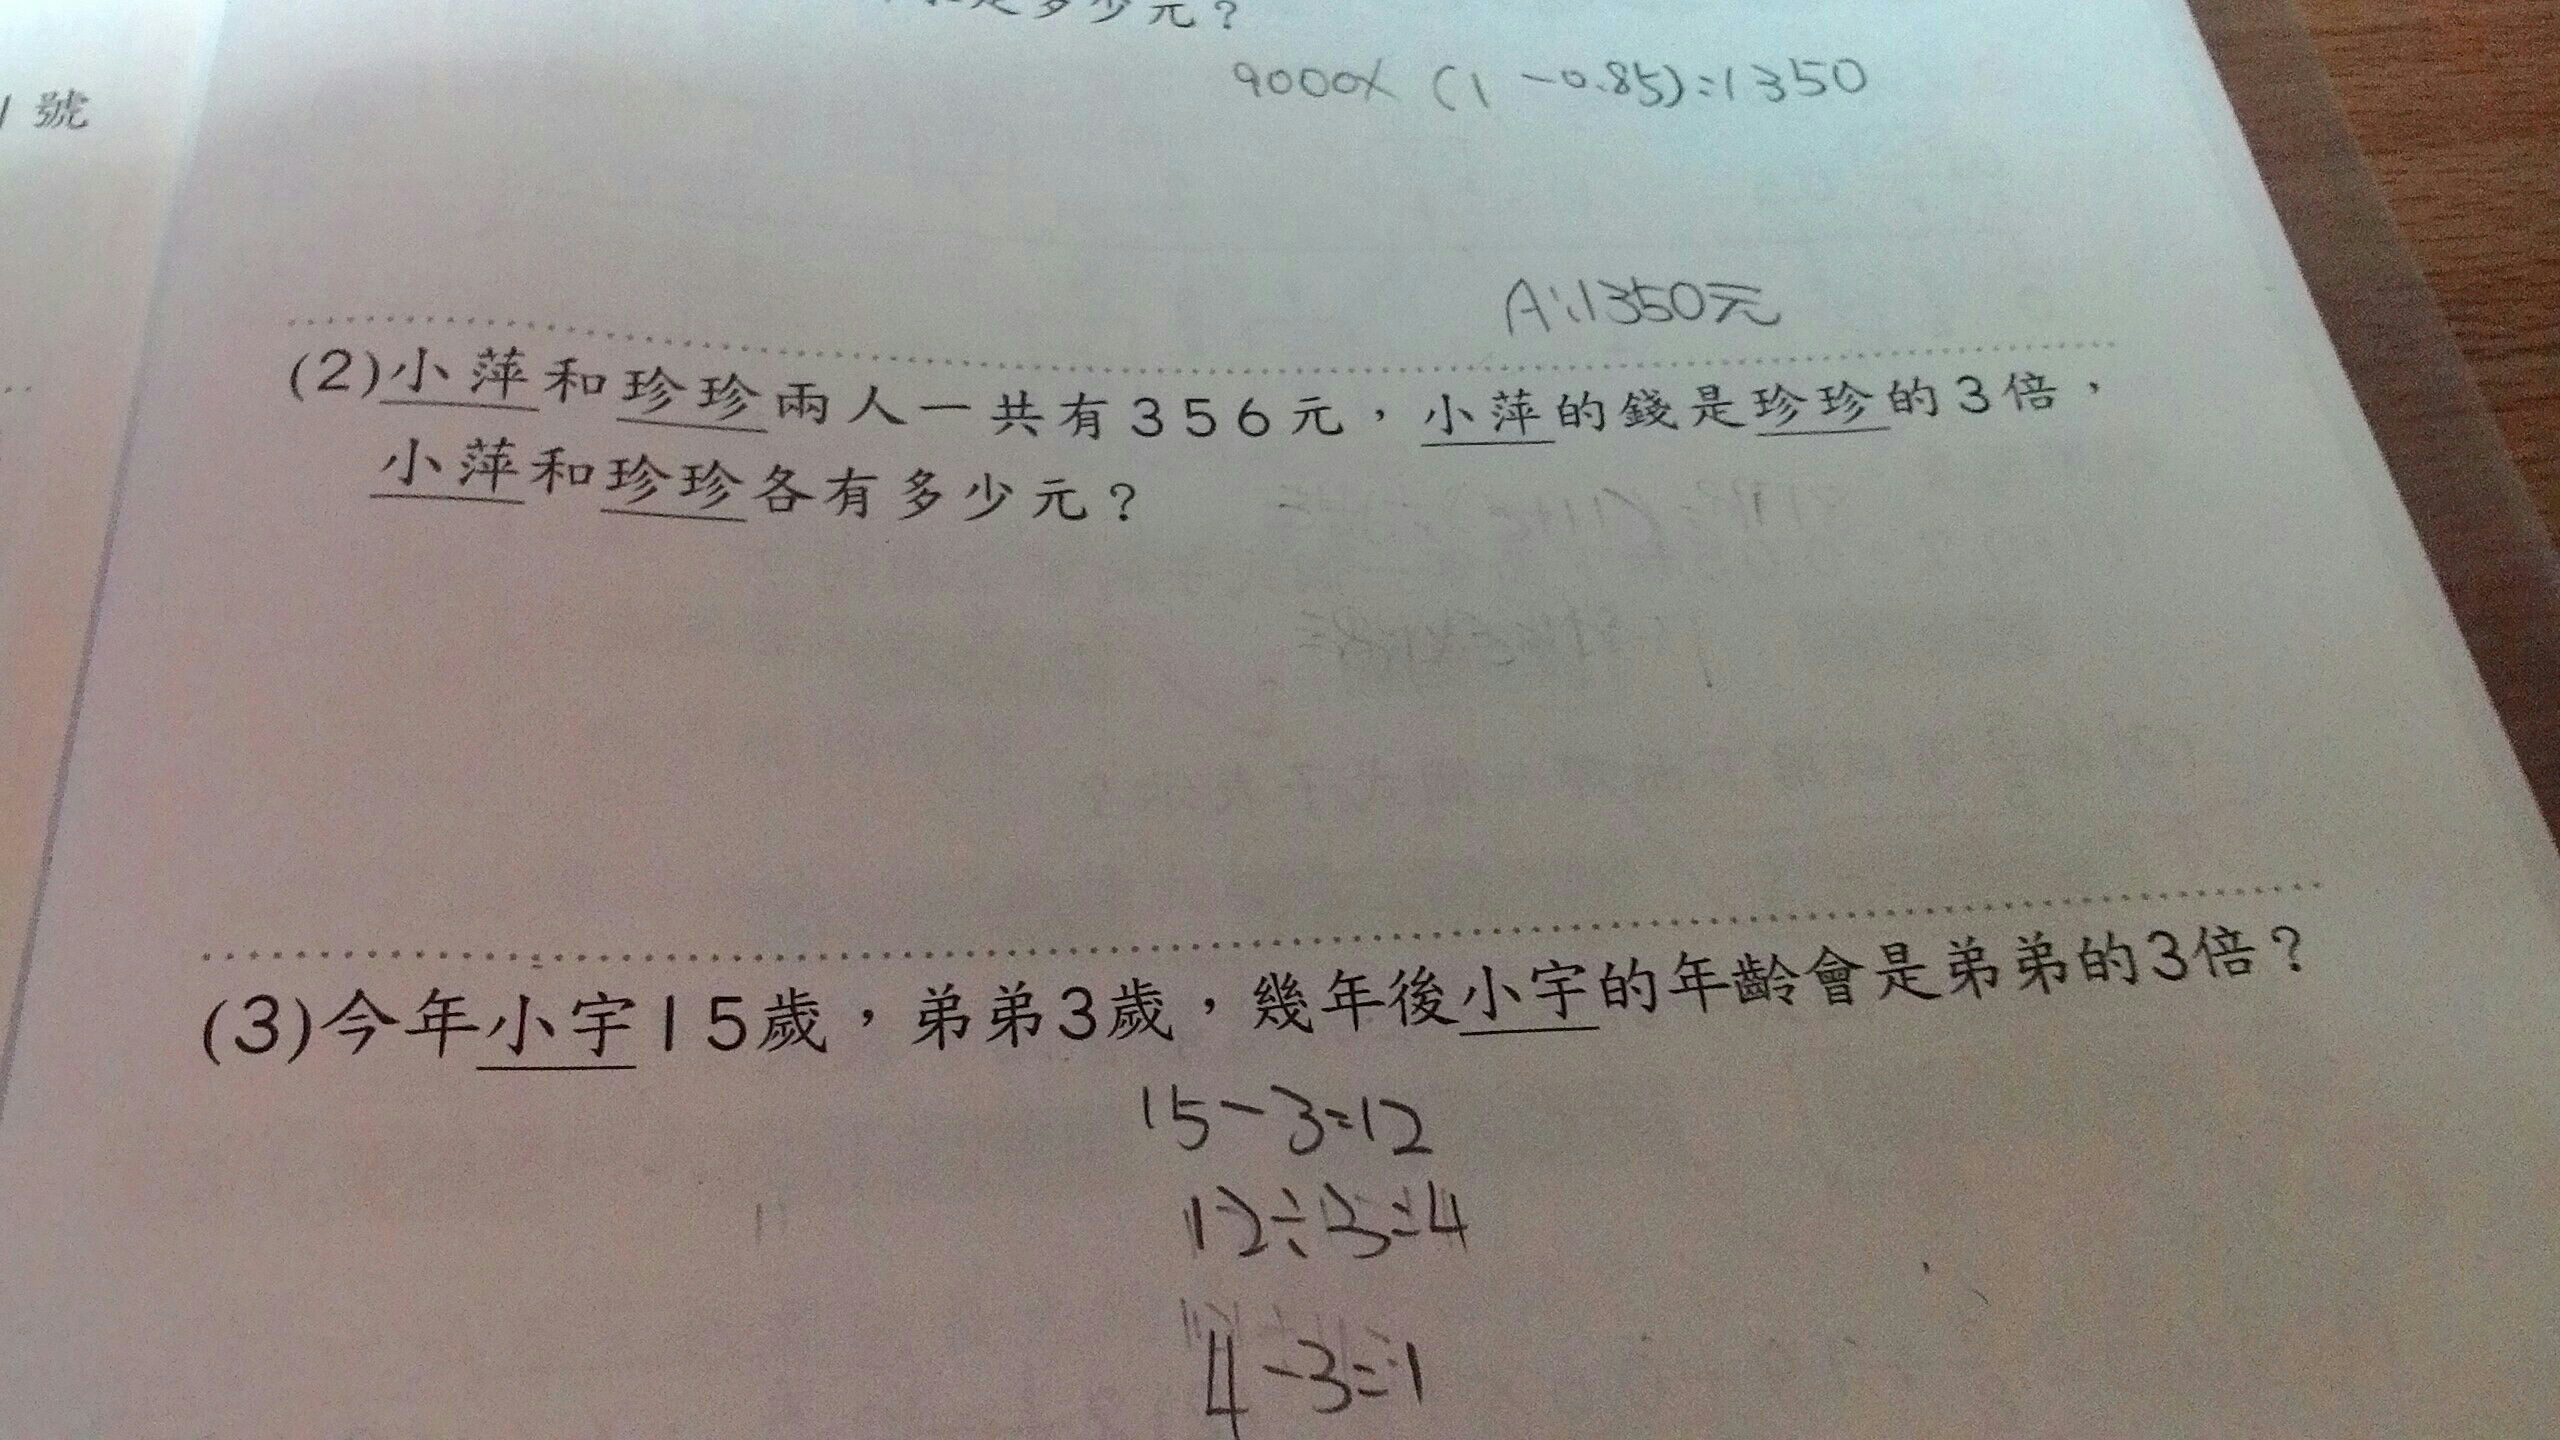 是多少元？
9000×（1－0.85）=1350
1號
A:1350元
(2)小萍和珍珍兩人一共有356元，小萍的錢是珍珍的3倍，
小萍和珍珍各有多少元？
(3)今年小宇15歲，弟弟3歲，幾年後小宇的年齡會是弟弟的3倍？
15－3=12
12÷3=4
4－3=1